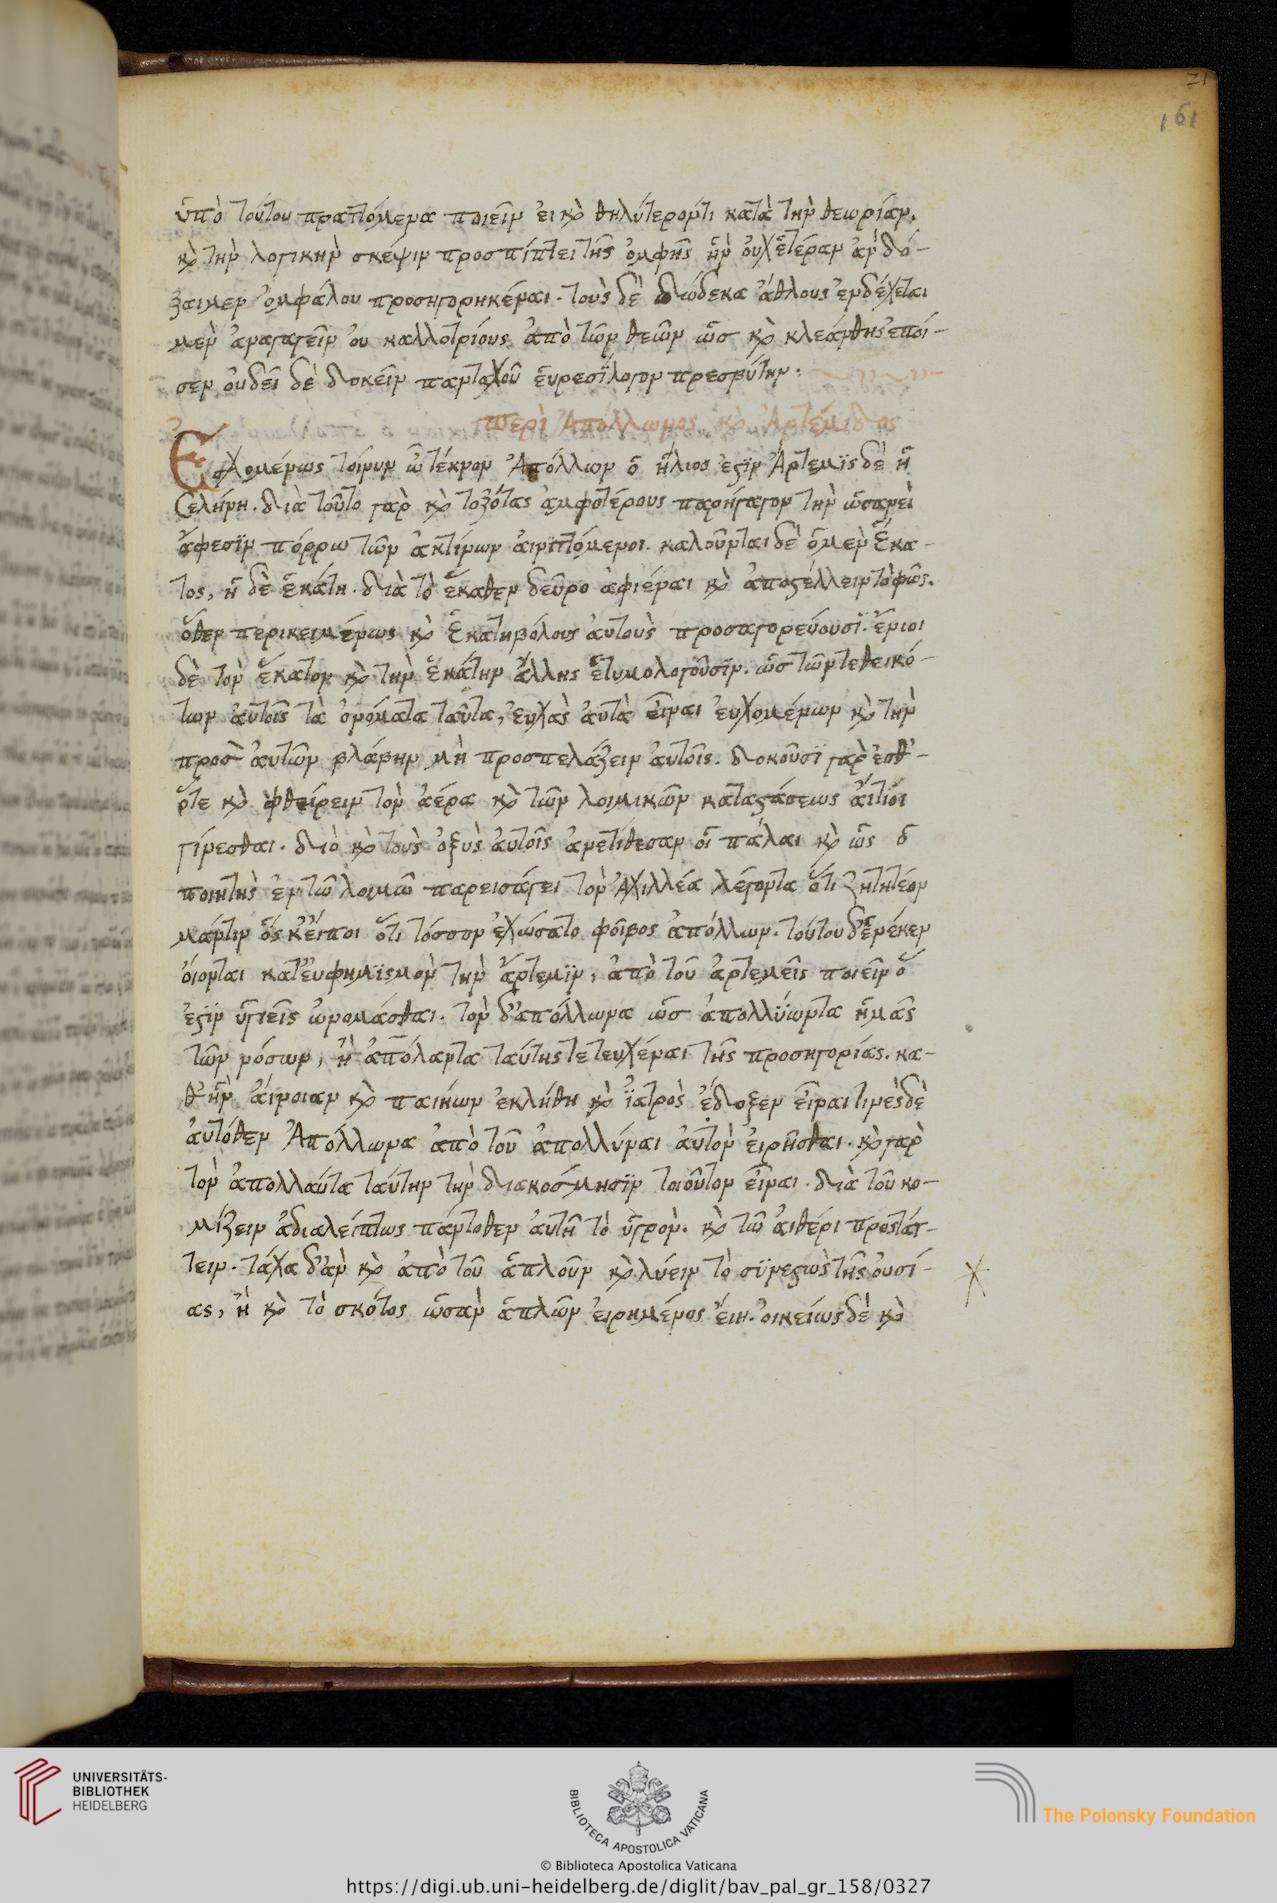 21
161
ὑπὸ τούτου πραττόμενα ποιεῖν εἰ κὸ θηλύτερόντι κατὰ τὴν θεωρίαν.
κὸ τὴν λογικὴν σκέψιν προσπίπτει τῆς ὀμφῆς ἣν οὐχ ἑτέραν ἂν δό-
ξαιμεν ὀμφάλου προσηγορηκέναι. τοὺς δὲ δώδεκα ἄθλους ἐνδέχεται
μεν ἀναγαγεῖν οὐ καλλοτρίους ἀπὸ τῶν θεῶν ὡσ κὸ κλεάνθης ἐποί-
σεν οὐδεῖ δὲ δοκεῖν πανταχοῦ εὑρεσϊλογον πρεσβύτην.
περὶ Ἀπόλλωνος κὸ Ἀρτέμιδος
Εσχομένως τοίνυν ὦ τέκνον Ἀπόλλων ὁ ἥλιος ἐστϊν Ἄρτεμϊς δὲ ἡ
Σελήνη. διὰ τοῦτο γὰρ κὸ τοξότας ἀμφοτέρους παρήγαγον τὴν ὡσανεὶ
ἄφεσϊν πόρρω τῶν ἀκτίνων αἰνιττόμενοι. καλοῦνται δὲ ὁ μὲν Ἕκα-
τος, ἡ δὲ ἑκάτη. διὰ τὸ ἕκαθεν δεῦρο ἀφιέναι κὸ ἀποστέλλειν τὸ φῶς.
ὅθεν περικειμένως κὸ ἑκατηβόλους αὐτοὺς προσαγορεύουσϊ. ἔνιοι
δὲ τὸν ἕκατον κὸ τὴν ἑκάτην ἄλλης ἐτυμολογοῦσϊν. ὡσ τῶν τεθεικό-
των αὐτοῖς τὰ ὀνόματα ταῦτα, εὐχὰς αὐτὰ εἶναι εὐχομένων κὸ τὴν
προσ αὐτῶν βλάβην μὴ προσπελάζειν αὐτοῖς. δοκοῦσϊ γὰρ ἐσθ'-
ὅτε κὸ φθείρειν τὸν ἀέρα κὸ τῶν λοιμικῶν καταστάσεως αἴτιοι
γίνεσθαι. διὸ κὸ τοὺς ὀξυς αὐτοῖς ἀνετίθεσαν οἱ πάλαι κὸ ὡς ὁ
ποιητὴς ἐν τῶ λοιμῶ παρεισάγει τὸν Ἀχιλλέα λέγοντα ὅτι ζητητέον
μάντιν ὅς κ'είποι ὅτι τόσσον ἐχώσατο φοῖβος ἀπόλλων. τούτου δ'ἕνεκεν
οἴονται κατ'εὐφημϊσμον τὴν ἄρτεμϊν, ἀπὸ τοῦ ἀρτεμεῖς ποιεῖν ὅ
ἐστϊν ὑγιεῖς ὠνομάσθαι. τὸν δ'ἀπόλλωνα ὡσ ἀπολλύωντα ἡμᾶς
τῶν νόσων, ἢ ἀπόλαντα ταύτης τετευχέναι τῆς προσηγορίας. κα-
θ'ἣν αἴνοιαν κὸ παιήων ἐκλήθη κὸ ϊατρὸς ἔδοξεν εἶναι τινὲς δὲ
αὐτόθεν Ἀπόλλωνα ἀπὸ τοῦ ἀπολλύναι αὐτὸν εἰρῆσθαι. κὸ γαρ
τὸν ἀπολλαύτα ταύτην τὴν διακοσμησϊν τοιοῦτον εἶναι. διὰ τοῦ νο-
μίζειν ἀδιαλείπτως πάντοθεν αὐτῆ τὸ ὑγρον. κὸ τῶ αἰθέρι προστάτ-
τειν. τάχα δ'ἂν κὸ ἀπὸ τοῦ ἁπλοῦν κὸ λύειν τὸ συνεστὼς τῆς οὐσί-
ας, ἢ κὸ τὸ σκότος ὡσὰν ἁπλῶν εἰρημένος εἴη. οἰκείως δὲ κὸ
UNIVERSITÄTS-
BIBLIOTHEK
HEIDELBERG
BIBLIOTECA APOSTOLICA VATICANA
The Polonsky Foundation
© Biblioteca Apostolica Vaticana
https://digi.ub.uni-heidelberg.de/diglit/bav_pal_gr_158/0327